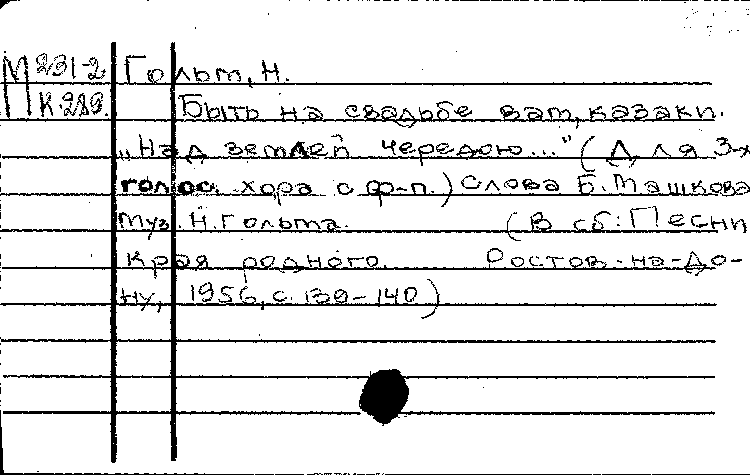 М 231-2 Гольт, Н.
К 289. Быть на свадьбе вам, казаки.
„Над землей чередою..." (Для 3-х
голос. хора с ф-п.) Слова Б. Машкова
Муз. Н. Гольта. (В сб: Песни
края родного. Ростов-на-До-
ну, 1956, с. 139-140)